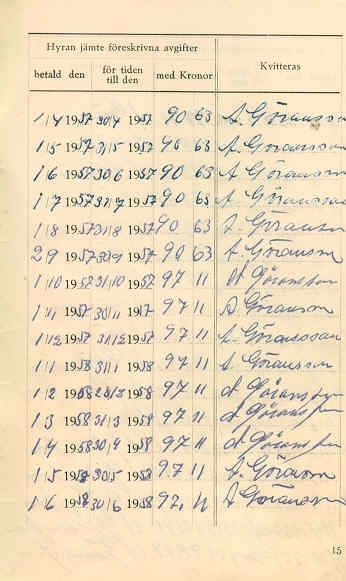 Hyran jämte föreskrivna avgifter
betald den för tiden till den med Kronor Kvitteras
1/4 1957 30/4 1957 90 63 A. Göransson
1/5 1957 31/5 1957 90 63 A. Göransson
1/6 1957 30/6 1957 90 63 A. Göransson
1/7 1957 31/7 1957 90 63 A. Göransson
1/8 1957 31/8 1957 90 63 A. Göransson
2/9 1957 30/9 1957 90 63 A. Göransson
1/10 1958 31/10 1957 97 11 A. Göransson
1/11 1957 30/11 1957 97 11 A. Göransson
1/12 1957 31/12 1957 97 11 A. Göransson
1/1 1958 31/1 1958 97 11 A. Göransson
1/2 1958 28/2 1958 97 11 A. Göransson
1/3 1958 31/3 1958 97 11 A. Göransson
1/4 1958 30/4 1958 97 11 A. Göransson
1/5 1958 30/5 1958 97 11 A. Göransson
1/6 1958 30/6 1958 97 11 A. Göransson
15